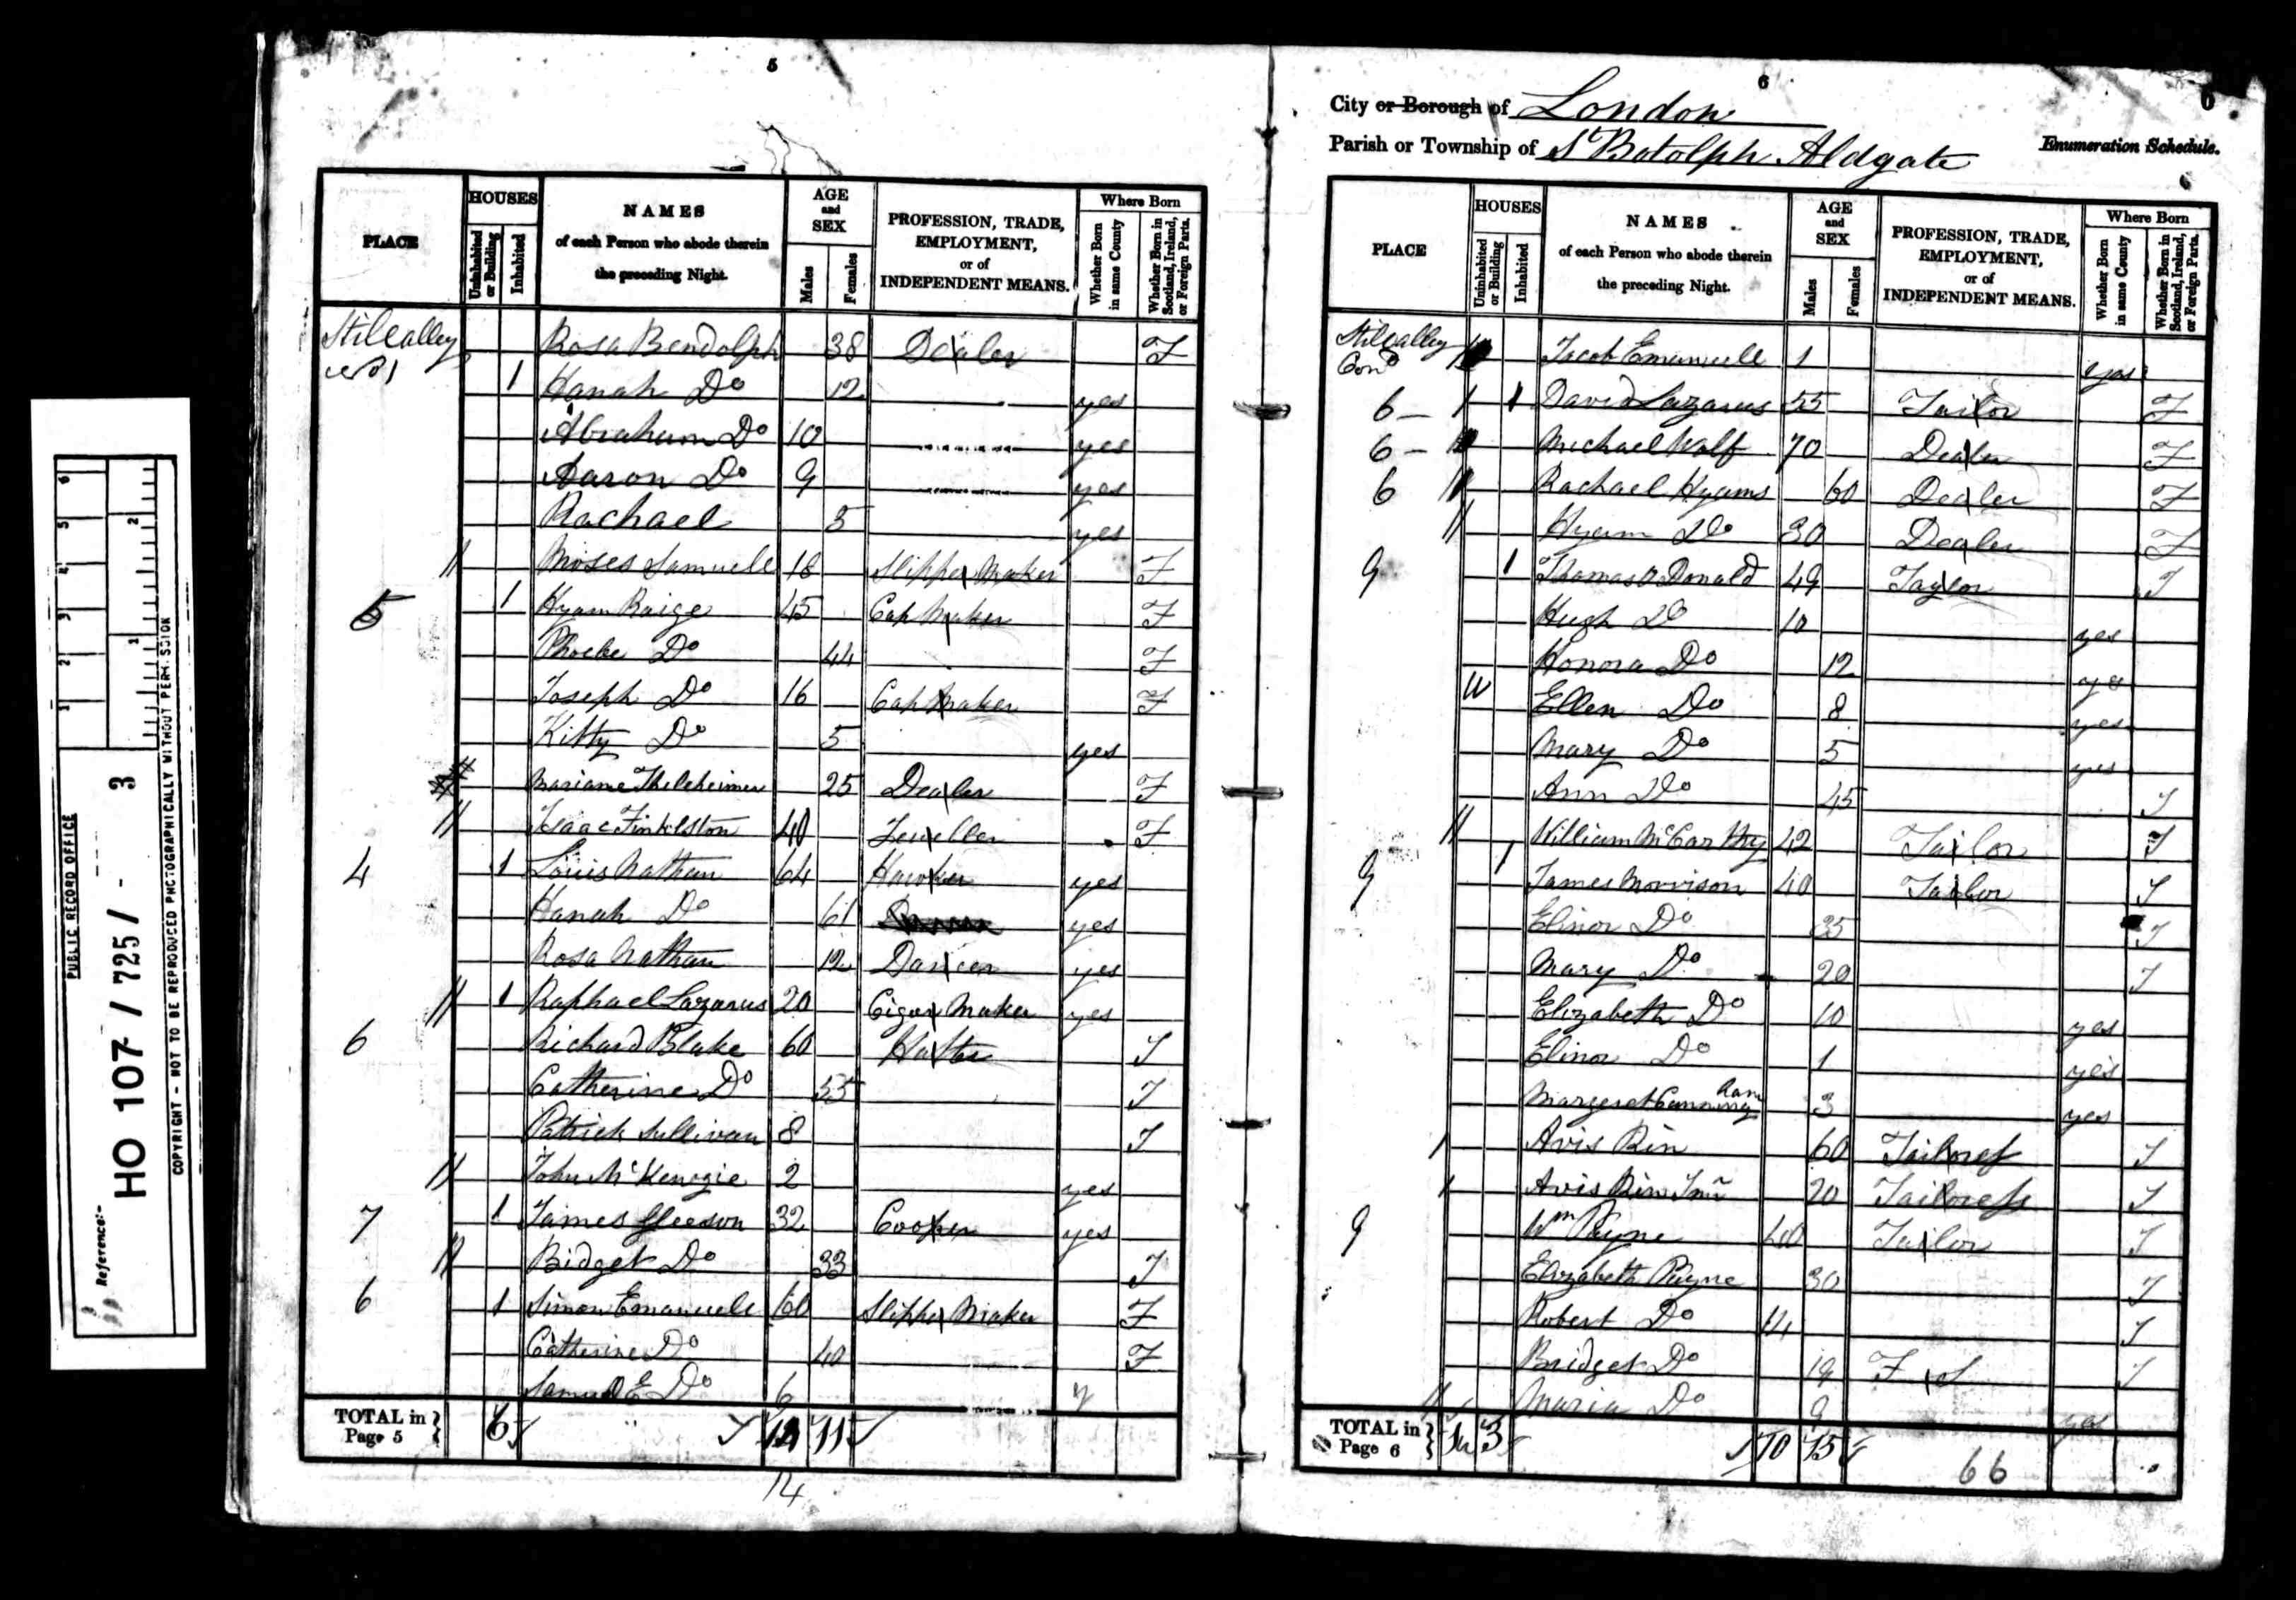 5
PLACE
HOUSES
Uninhabited or Building
Inhabited
NAMES
of each Person who abode therein
the preceding Night.
AGE
and
SEX
Males
Females
PROFESSION, TRADE,
EMPLOYMENT,
or of
INDEPENDENT MEANS.
Where Born
Whether Born in same County
Whether Born in Scotland, Ireland, or Foreign Parts.
Stillalley Rosa Bendolph 38 Dealer F
1 Hanah Do 12 yes
Abraham Do 10 yes
Aaron Do 9 yes
Rachael 5 yes
Moses Samuell 18 Slipper Maker F
5 1 Hyam Raige 45 Cap Maker F
Phoebe Do 44 F
Joseph Do 16 Cap Maker F
Kitty Do 5 yes
Mariane 25 Dealer F
Isaac Finkelston 40 Jeweller F
4 1 Louis Nathan 64 Hawker yes
Hanah Do 61 yes
Rosa Nathan 12 Dancer yes
1 Raphael Lazarus 20 Cigar Maker yes
6 Richard Blake 60 Hatter I
Catherine Do 55 I
Patrick Sullivan 8 I
John McKenzie 2 yes
7 1 James Gleeson 32 Cooper yes
Bidget Do 33 I
6 1 Simon Emanuell 60 Slipper Maker F
Catherine Do 40 F
Samuel E Do 6 y
TOTAL in Page 5 6 11
14
6
6
City or Borough of London
Parish or Township of St Botolph Aldgate
Enumeration Schedule.
PLACE
HOUSES
Uninhabited or Building
Inhabited
NAMES
of each Person who abode therein
the preceding Night.
AGE
and
SEX
Males
Females
PROFESSION, TRADE,
EMPLOYMENT,
or of
INDEPENDENT MEANS.
Where Born
Whether Born in same County
Whether Born in Scotland, Ireland, or Foreign Parts.
Stillalley Cond Jacob Emanuell 1 yes
6 1 1 David Lazarus 55 Tailor F
6 Michael Wolf 70 Dealer F
6 Rachael Hyams 60 Dealer F
Hyam Do 30 Dealer F
9 1 Thomas O Donald 49 Taylor I
Hugh Do 10 yes
Honora Do 12 yes
Ellen Do 8 yes
Mary Do 5 yes
Ann Do 45 I
William McCarthy 42 Tailor I
9 1 James Morrison 40 Tailor I
Elinor Do 35 I
Mary Do 20 I
Elizabeth Do 10 yes
Elinor Do 1 yes
Margeret Cunningham 3 yes
Avis Rin 60 Tailoress I
Avis Rin Junr 20 Tailoress I
9 Wm Payne 40 Tailor I
Elizabeth Payne 30 I
Robert Do 14 I
Bridget Do 19 F S I
Maria Do 9 yes
TOTAL in Page 6 3 10 15
66
PUBLIC RECORD OFFICE
1 2 3 4 5 6
1 2
Reference:-
HO 107 / 725 / - 3
COPYRIGHT - NOT TO BE REPRODUCED PHOTOGRAPHICALLY WITHOUT PERMISSION